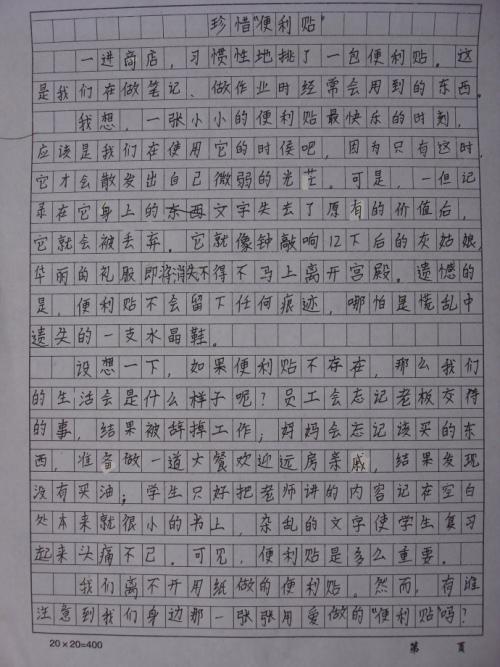 珍惜“便利贴”
一进商店，习惯性地挑了一包便利贴。这
是我们在做笔记、做作业时经常会用到的东西。
我想，一张小小的便利贴最快乐的时刻，
应该是我们在使用它的时候吧，因为只有这时，
它才会散发出自己微弱的光芒。可是，一但记
录在它身上的东西文字失去了原有的价值后，
它就会被丢弃。它就像钟敲响12下后的灰姑娘，
华丽的礼服即将消失不得不马上离开宫殿。遗憾的
是，便利贴不会留下任何痕迹，哪怕是慌乱中
遗失的一支水晶鞋。
设想一下，如果便利贴不存在，那么我们
的生活会是什么样子呢？员工会忘记老板交待
的事，结果被辞掉工作；妈妈会忘记该买的东
西，准备做一道大餐欢迎远房亲戚，结果发现
没有买油；学生只好把老师讲的内容记在空白
处本来就很小的书上，杂乱的文字使学生复习
起来头痛不已。可见，便利贴是多么重要。
我们离不开用纸做的便利贴。然而，有谁
注意到我们身边那一张张用爱做的“便利贴”吗？
20×20=400
第 页